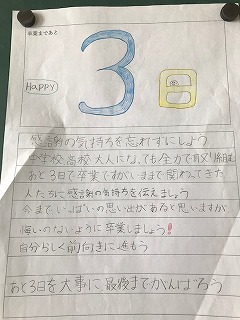 卒業まであと
Happy
3日
感謝の気持ちを忘れずにしよう
中学校、高校、大人になっても全力で取り組む
あと3日で卒業ですがいままで関わってきた
人たちに感謝の気持ちを伝えましょう
今までいっぱいの思い出があると思いますが
悔いのないように卒業しましょう!
自分らしく前向きに進もう
あと3日を大事に最後までがんばろう